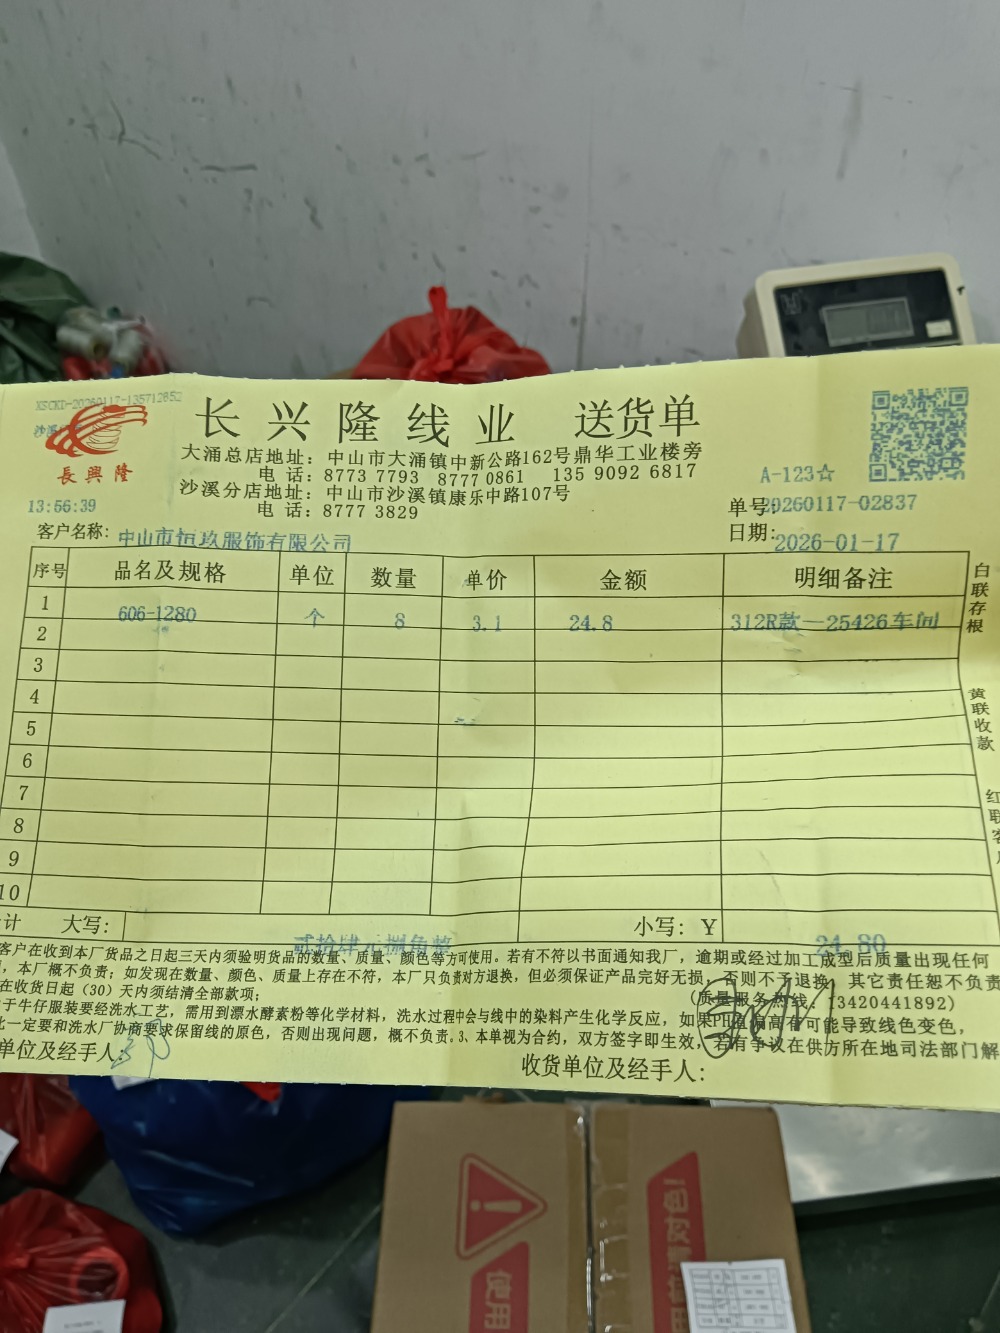 XSCKD-20260117-135712852
长兴隆线业 送货单
長興隆
大涌总店地址：中山市大涌镇中新公路162号鼎华工业楼旁
电 话：8773 7793 8777 0861 135 9092 6817
沙溪分店地址：中山市沙溪镇康乐中路107号
电 话：8777 3829
A-123☆
13:56:39
单号：20260117-02837
客户名称：中山市恒玖服饰有限公司
日期：2026-01-17
序号 品名及规格 单位 数量 单价 金额 明细备注
1 606-1280 个 8 3.1 24.8 312R款—25426车间
2
3
4
5
6
7
8
9
10
计 大写： 贰拾肆元捌角整 小写：Y 24.80
白联存根
黄联收款
红联客
客户在收到本厂货品之日起三天内须验明货品的数量、质量、颜色等方可使用。若有不符以书面通知我厂，逾期或经过加工成型后质量出现任何
，本厂概不负责；如发现在数量、颜色、质量上存在不符，本厂只负责对方退换，但必须保证产品完好无损，否则不予退换，其它责任恕不负责
在收货日起（30）天内须结清全部款项；
(质量服务热线：13420441892)
于牛仔服装要经洗水工艺，需用到漂水酵素粉等化学材料，洗水过程中会与线中的染料产生化学反应，如果PH值偏高有可能导致线色变色，
一定要和洗水厂协商要求保留线的原色，否则出现问题，概不负责。3、本单视为合约，双方签字即生效，若有争议在供方所在地司法部门解
单位及经手人：
收货单位及经手人：